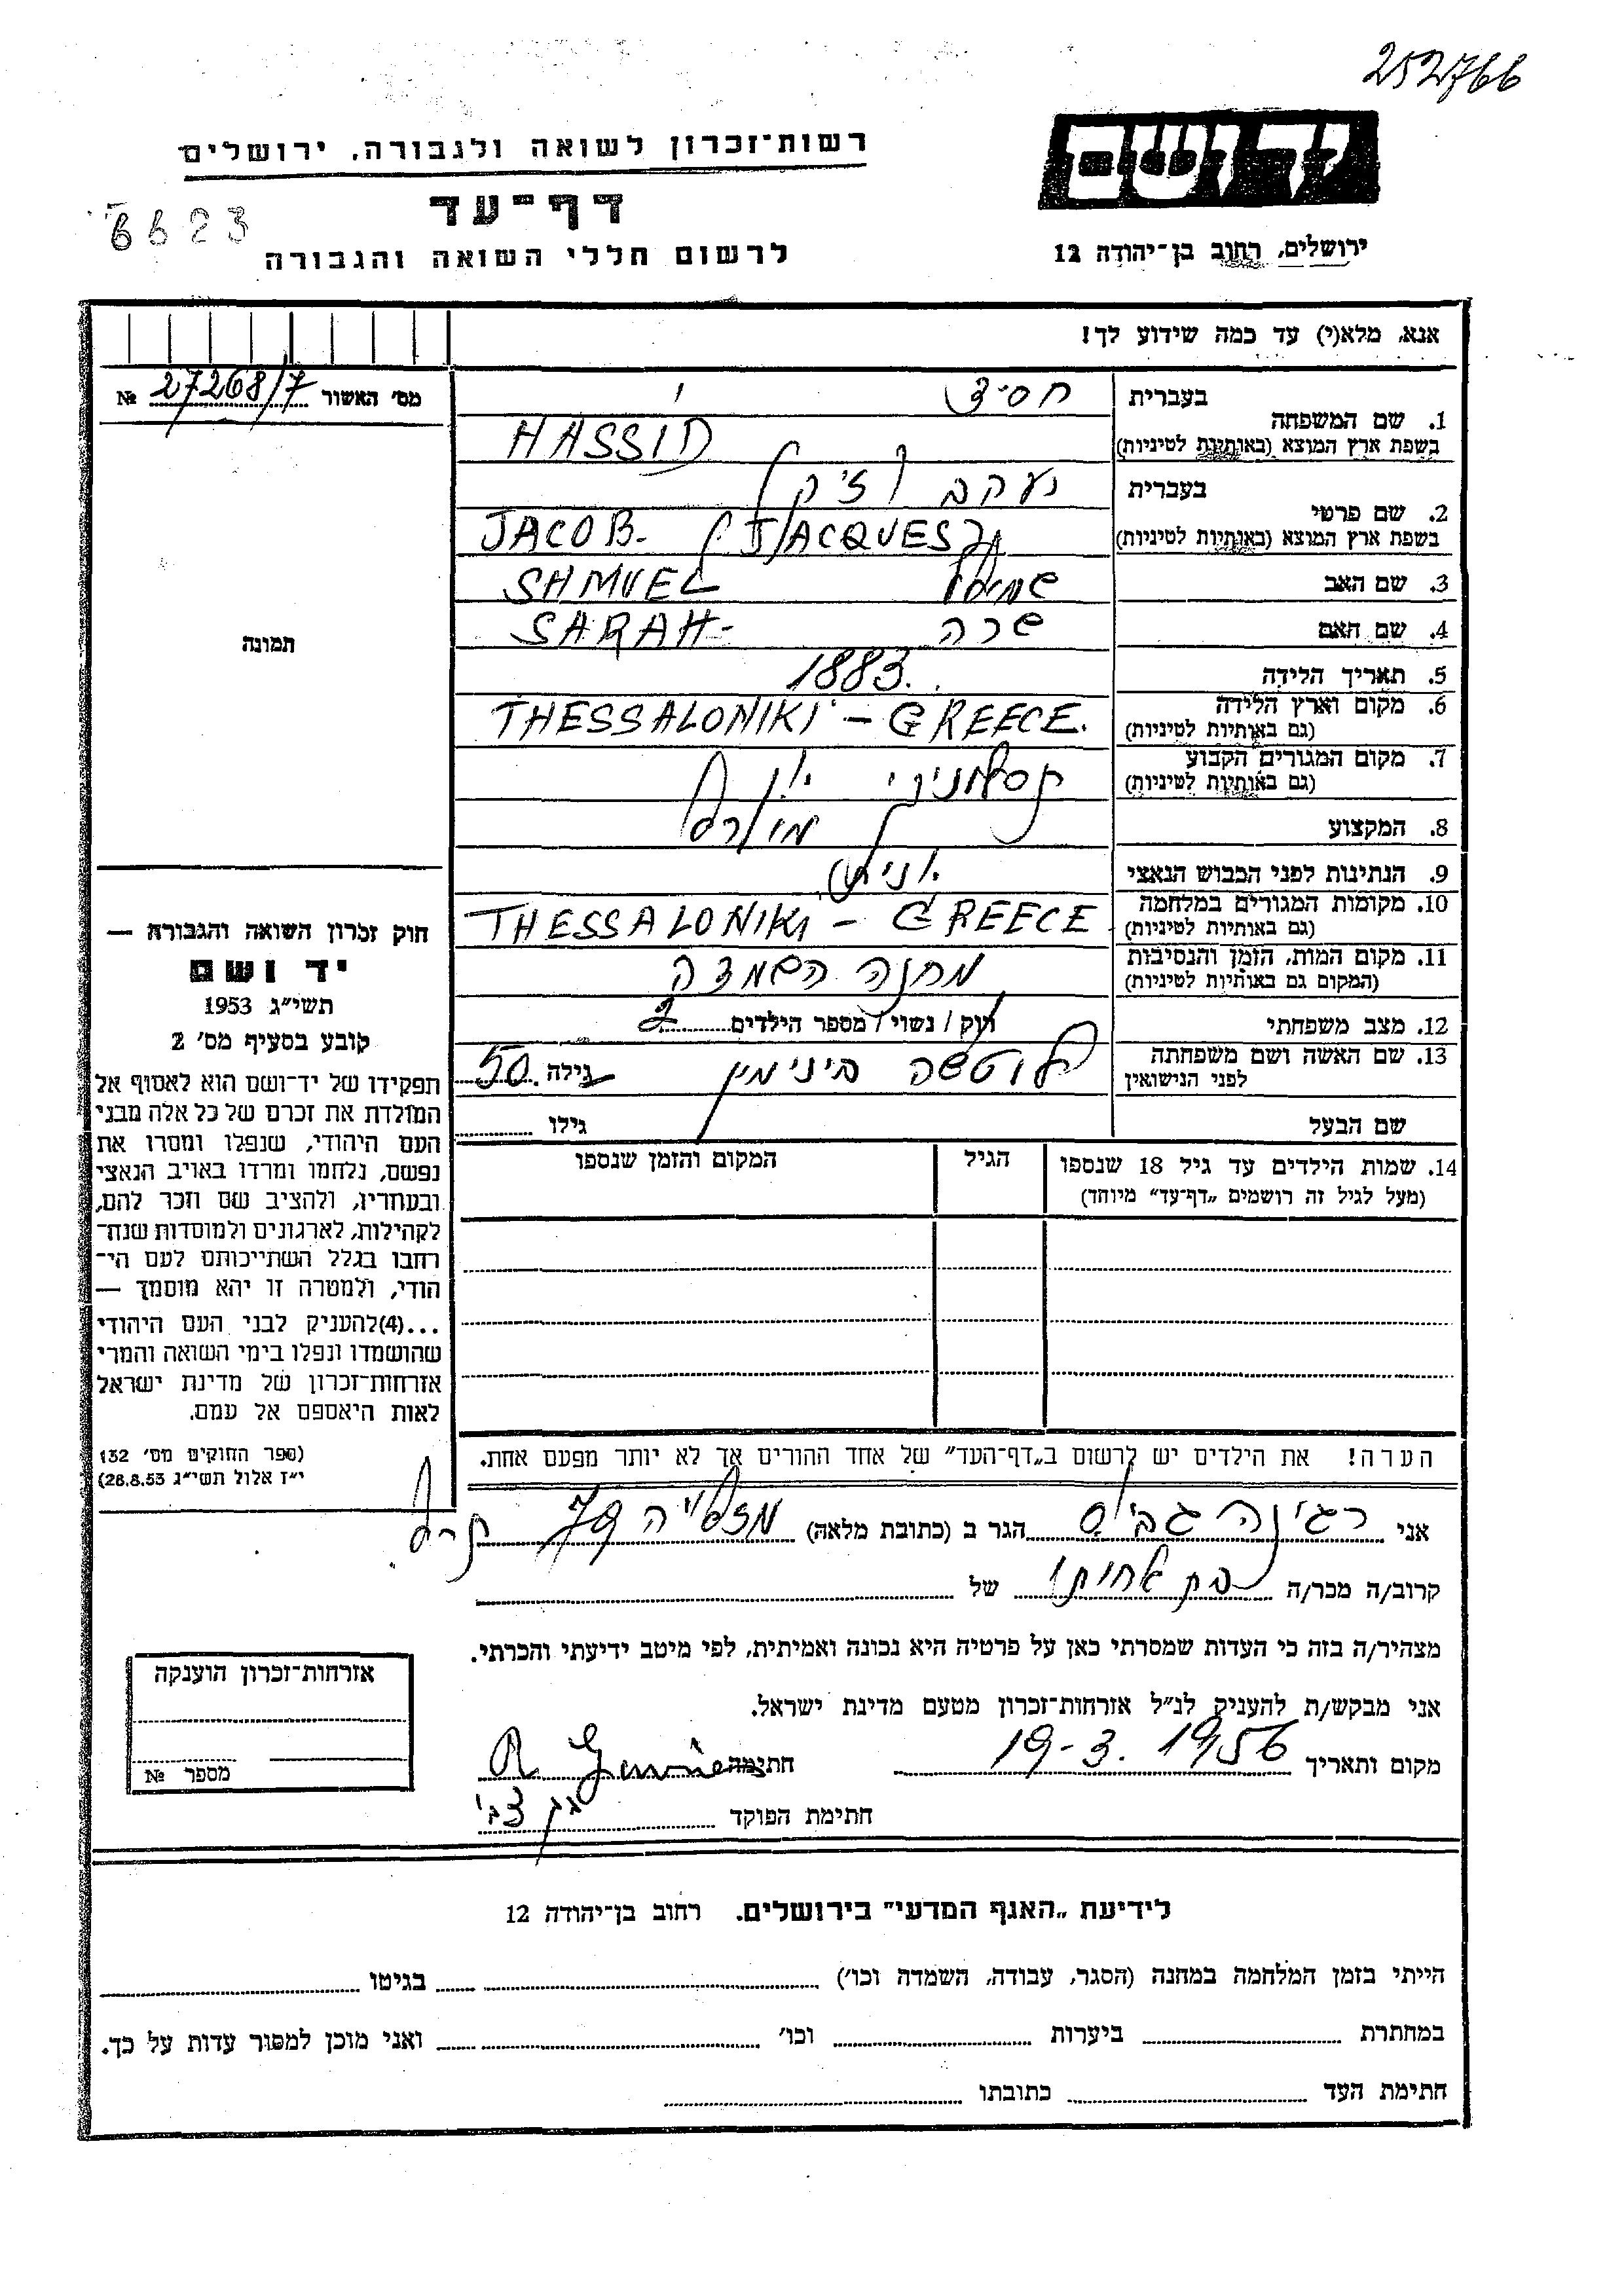 252766
רשות־זכרון לשואה ולגבורה, ירושלים
דף־עד
לרשום חללי השואה והגבורה
6623
יד ושם
ירושלים, רחוב בן־יהודה 12
אנא, מלא(י) עד כמה שידוע לך!
מס׳ האשור 27268/7 №
תמונה
1. שם המשפחה
בעברית חסיד
בשפת ארץ המוצא (באותיות לטיניות) HASSID
2. שם פרטי
בעברית יעקב (ז׳ק)
בשפת ארץ המוצא (באותיות לטיניות) JACOB- (JACQUES)
3. שם האב שמואל SHMUEL
4. שם האם שרה SARAH-
5. תאריך הלידה 1883.
6. מקום וארץ הלידה
(גם באותיות לטיניות) THESSALONIKI – GREECE.
7. מקום המגורים הקבוע
(גם באותיות לטיניות)
8. המקצוע
9. הנתינות לפני הכבוש הנאצי
10. מקומות המגורים במלחמה
(גם באותיות לטיניות) THESSALONIKI – GREECE
11. מקום המות, הזמן והנסיבות
(המקום גם באותיות לטיניות) מחנה השמדה
12. מצב משפחתי רוק / נשוי / מספר הילדים 2
13. שם האשה ושם משפחתה
לפני הנישואין בינימין גילה 50
שם הבעל גילו
14. שמות הילדים עד גיל 18 שנספו
(מעל לגיל זה רושמים „דף־עד״ מיוחד)
הגיל
המקום והזמן שנספו
חוק זכרון השואה והגבורה —
יד ושם
תשי״ג 1953
קובע בסעיף מס׳ 2
תפקידו של יד־ושם הוא לאסוף אל
המולדת את זכרם של כל אלה מבני
העם היהודי, שנפלו ומסרו את
נפשם, נלחמו ומרדו באויב הנאצי
ובעוזריו, ולהציב שם וזכר להם,
לקהילות, לארגונים ולמוסדות שנח־
רבו בגלל השתייכותם לעם הי־
הודי, ולמטרה זו יהא מוסמך —
...(4) להעניק לבני העם היהודי
שהושמדו ונפלו בימי השואה והמרי
אזרחות־זכרון של מדינת ישראל
לאות היאספם אל עמם.
(ספר החוקים מס׳ 132
י״ז אלול תשי״ג 28.8.53)
הערה! את הילדים יש לרשום ב„דף־העד״ של אחד ההורים אך לא יותר מפעם אחת.
אני רג׳ינה הגר ב (כתובת מלאה) 79
קרוב/ה מכר/ה בת אחותו של
מצהיר/ה בזה כי העדות שמסרתי כאן על פרטיה היא נכונה ואמיתית, לפי מיטב ידיעתי והכרתי.
אני מבקש/ת להעניק לנ״ל אזרחות־זכרון מטעם מדינת ישראל.
מקום ותאריך 19-3.1956 חתימה
חתימת הפוקד
אזרחות־זכרון הוענקה
מספר №
לידיעת „האגף המדעי״ בירושלים, רחוב בן־יהודה 12
הייתי בזמן המלחמה במחנה (הסגר, עבודה, השמדה וכו׳) בגיטו
במחתרת ביערות וכו׳ ואני מוכן למסור עדות על כך.
חתימת העד כתובתו